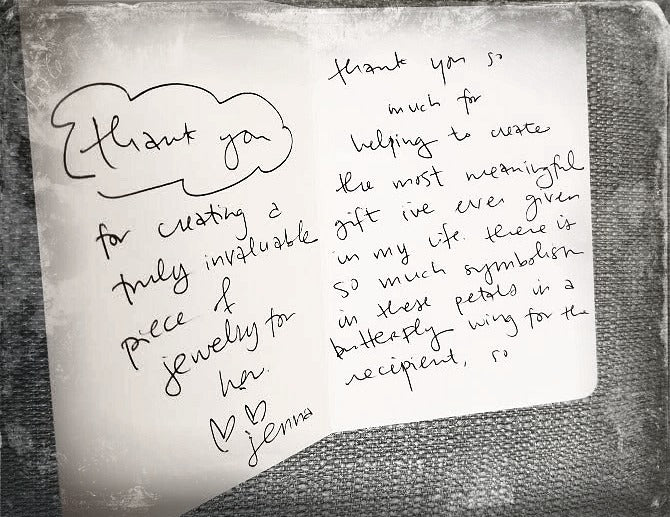 thank you so
much for
helping to create
the most meaningful
gift i've ever given
in my life. there is
so much symbolism
in these petals in a
butterfly wing for the
recipient, so
thank you
for creating a
truly invaluable
piece of
jewelry for
her.
♡ ♡
jenna